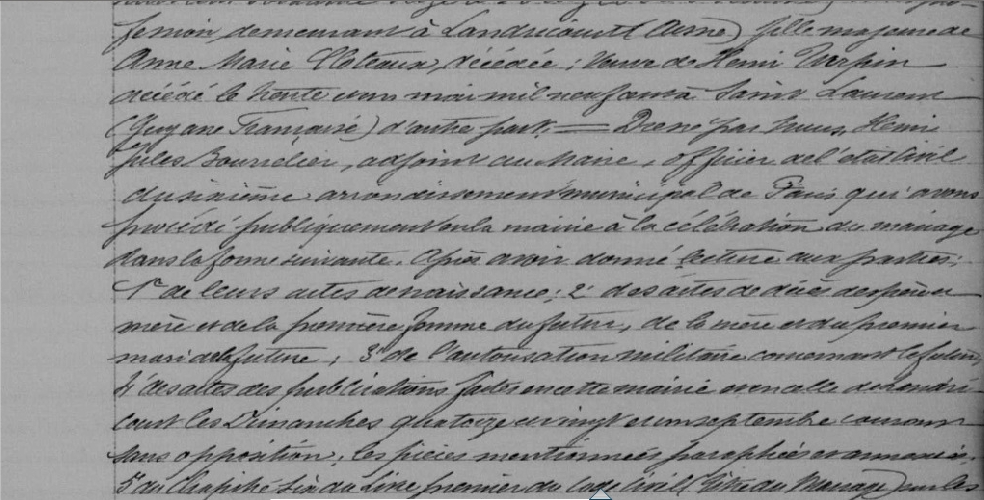 fession, demeurant à Landricourt (Aisne) fille majeure de
Anne Marie décédée ; Veuve de Henri Turpin
décédé le trente et un mai mil neuf cent à Saint Laurent
(Guyane Française) d'autre part. = Dressé par nous, Henri
Jules Bourrelier, adjoint au Maire, officier de l'état civil
du sixième arrondissement municipal de Paris qui avons
procédé publiquement en la mairie à la célébration du mariage
dans la forme suivante. Après avoir donné lecture aux parties :
1° de leurs actes de naissance ; 2° des actes de décès des père et
mère et de la première femme du futur, de la mère et du premier
mari de la future ; 3° de l'autorisation militaire concernant le futur,
4° des actes des publications faites en cette mairie et en celle de Landri-
court les Dimanches quatorze et vingt et un septembre courant
sans opposition ; les pièces mentionnées paraphées et annexées.
5° du Chapitre six du Livre premier du Code Civil (Titre du Mariage) sur les